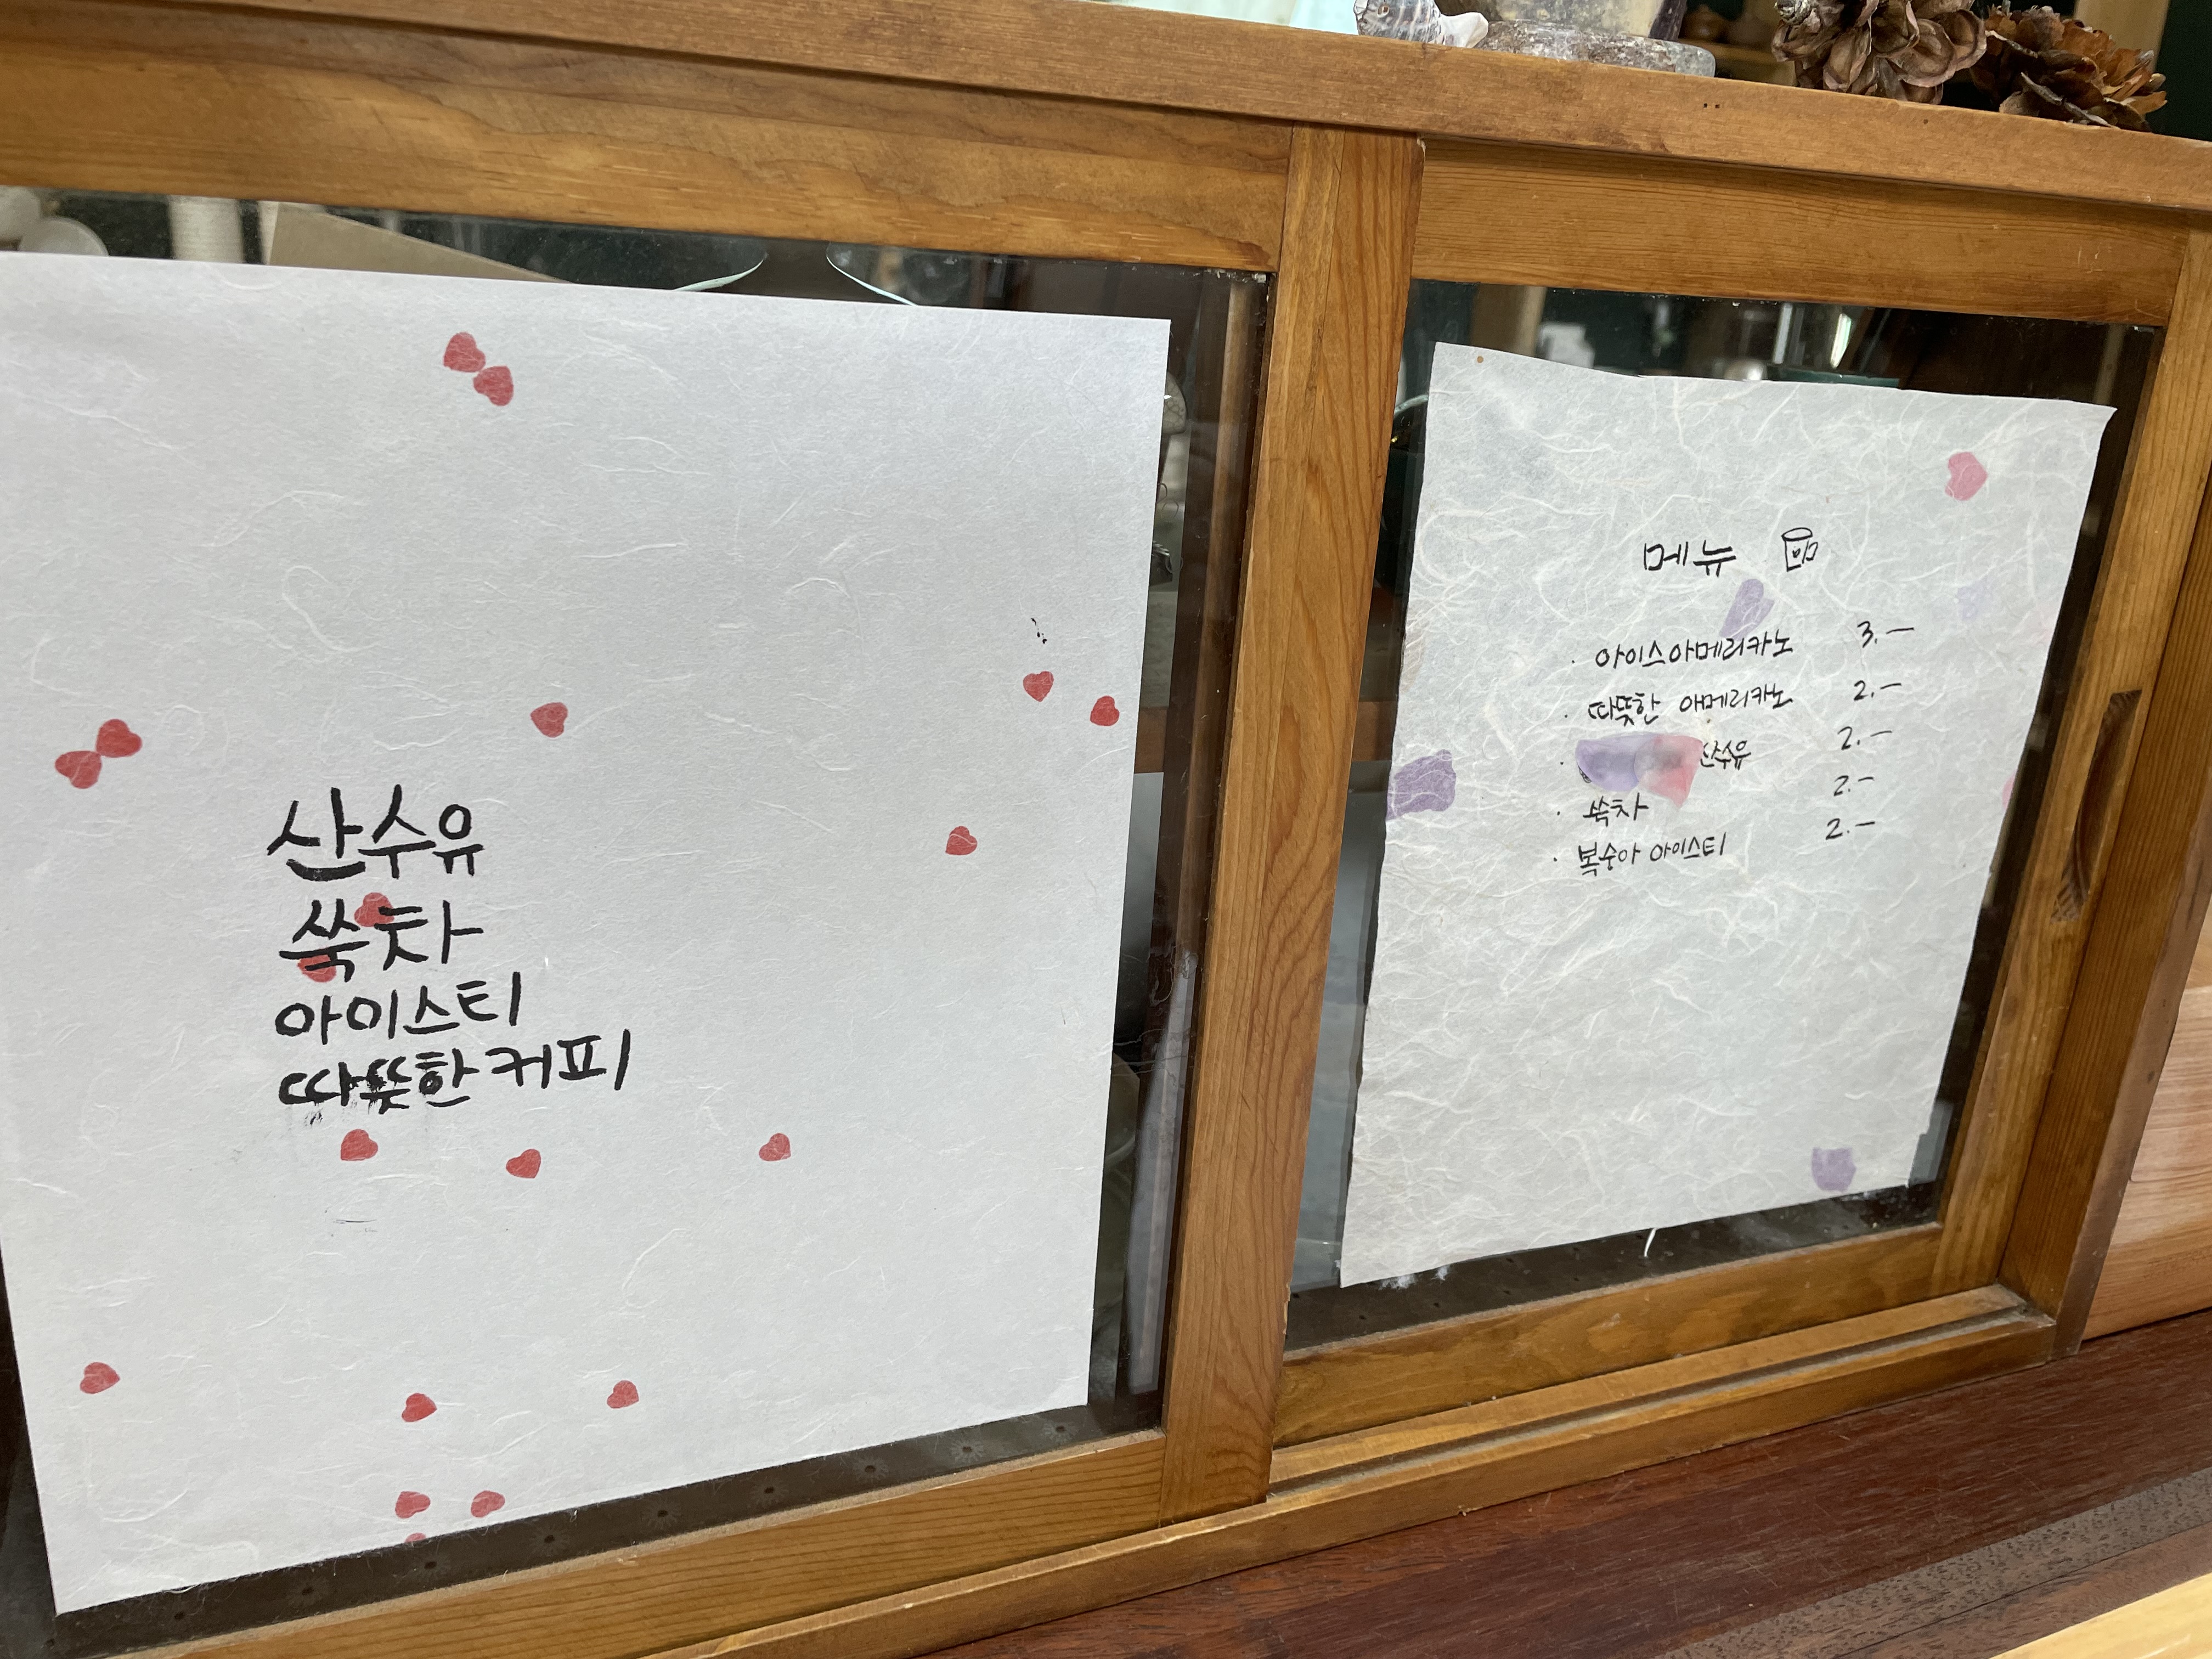 산수유
쑥차
아이스티
따뜻한 커피
메뉴
· 아이스아메리카노 3.-
· 따뜻한 아메리카노 2.-
· 산수유 2.-
· 쑥차 2.-
· 복숭아 아이스티 2.-